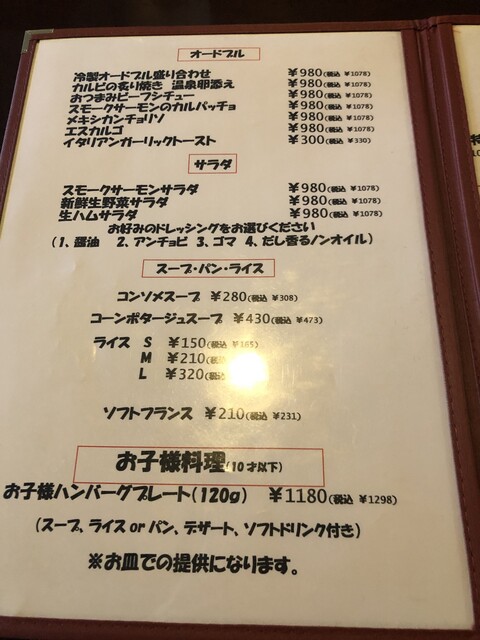 オードブル
冷製オードブル盛り合わせ ¥980(税込 ¥1078)
カルビの炙り焼き 温泉卵添え ¥980(税込 ¥1078)
おつまみビーフシチュー ¥980(税込 ¥1078)
スモークサーモンのカルパッチョ ¥980(税込 ¥1078)
メキシカンチョリソ ¥980(税込 ¥1078)
エスカルゴ ¥980(税込 ¥1078)
イタリアンガーリックトースト ¥300(税込 ¥330)
サラダ
スモークサーモンサラダ ¥980(税込 ¥1078)
新鮮生野菜サラダ ¥980(税込 ¥1078)
生ハムサラダ ¥980(税込 ¥1078)
お好みのドレッシングをお選びください
(1、醤油 2、アンチョビ 3、ゴマ 4、だし香るノンオイル)
スープ・パン・ライス
コンソメスープ ¥280(税込 ¥308)
コーンポタージュスープ ¥430(税込 ¥473)
ライス S ¥150(税込 ¥165)
M ¥210(税込
L ¥320(税込
ソフトフランス ¥210(税込 ¥231)
お子様料理(10才以下)
お子様ハンバーグプレート(120g) ¥1180(税込 ¥1298)
(スープ、ライス or パン、デザート、ソフトドリンク付き)
※お皿での提供になります。